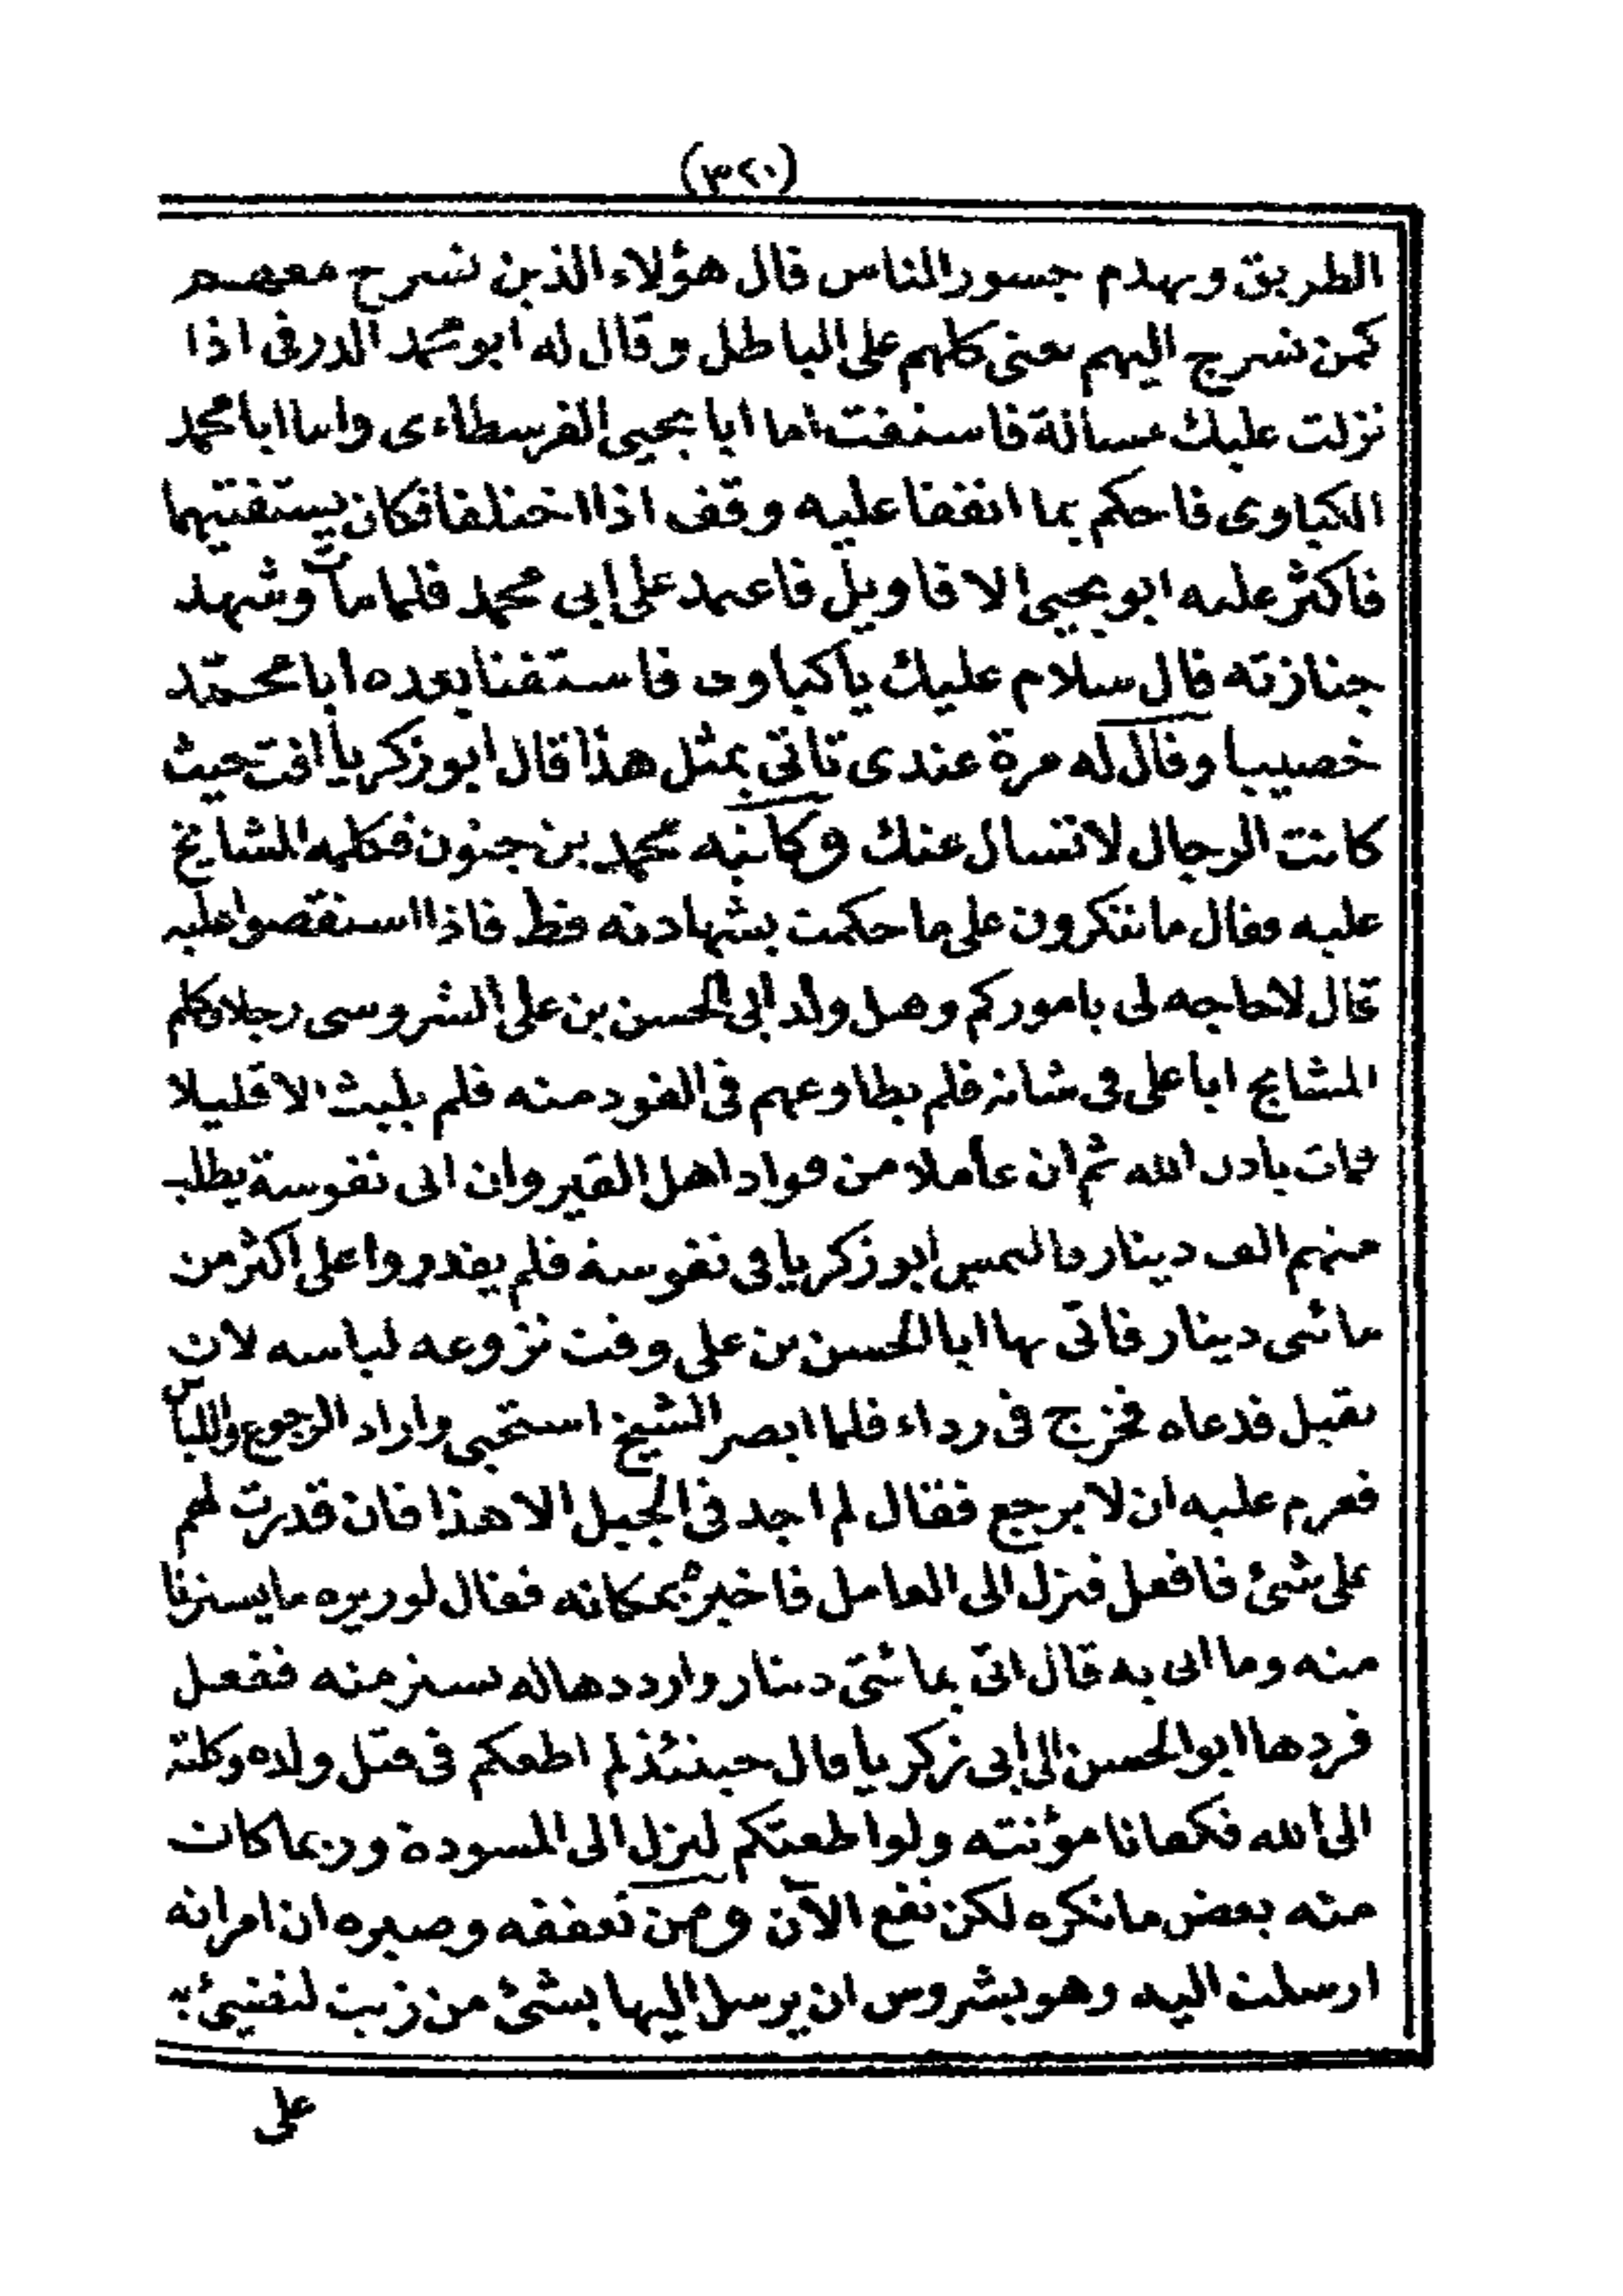 (٣٢٠)
الطريق ويهدم جسور الناس قال هؤلاء الذين نسرح معهم
كمن نسرج اليهم يعنى كلهم على الباطل وقال له ابو محمد الدرفى اذا
نزلت عليك مسالة فاستفت اما ابا يحيى الفرسطاءى واما ابا محمد
الكباوى فاحكم بما اتفقا عليه وقف اذا اختلفا فكان يستفتيهما
فاكثر عليه ابو يحيى الاقاويل فاعتمد على ابى محمد فلما مات وشهد
جنازته قال سلام عليك يا كباوى فاستفتا بعده ابا محمّد
خصيبا وقال له مرة عندى تاتى بمثل هذا قال ابو زكريا افت حيث
كانت الرجال لا تسال عنك وكاتبه محمد بن جنون فكلمه المشايخ
عليه فقال ما تنكرون على ما حكمت بشهادته قط فاذا استقصوا عليه
قال لا حاجه لى باموركم وهل ولد ابى الحسن بن على الشروسى رجلا فكلم
المشايخ ابا على فى شانه فلم يطاوعهم فى القود منه فلم يلبث الا قليلا
فمات باذن الله ثم ان عاملا من قواد اهل القيروان اتى نفوسة يطلب
منهم الف دينار فالتمس ابو زكريا فى نفوسة فلم يقدروا على اكثر من
مائتى دينار فاتى بها ابا الحسن بن على وقت نزوعه لباسه لان
يقيل فدعاه فخرج فى رداء فلما ابصر الشيخ استحيى واراد الرجوع واللباس
فعزم عليه ان لا يرجع فقال لم اجد فى الجبل الا هذا فان قدرت لهم
على شئ فافعل فنزل الى العامل فاخبره بمكانه فقال لوزيره ما يسترنا
منه وما اتى به قال اتى بمائتى دينار وارددها له نستر منه ففعل
فردها ابو الحسن الى ابى زكريا قال حينئذ لم اطعكم فى قتل ولده وكلته
الى الله فكفانا مؤنته ولو اطعتكم لنزل الى المسودة وربما كانت
منه بعض ما نكره لكن نفع الآن ومن تعففه وصبره ان امراته
ارسلت اليه وهو بشروس ان يرسل اليها بشئ من زيت لتفتئ
على